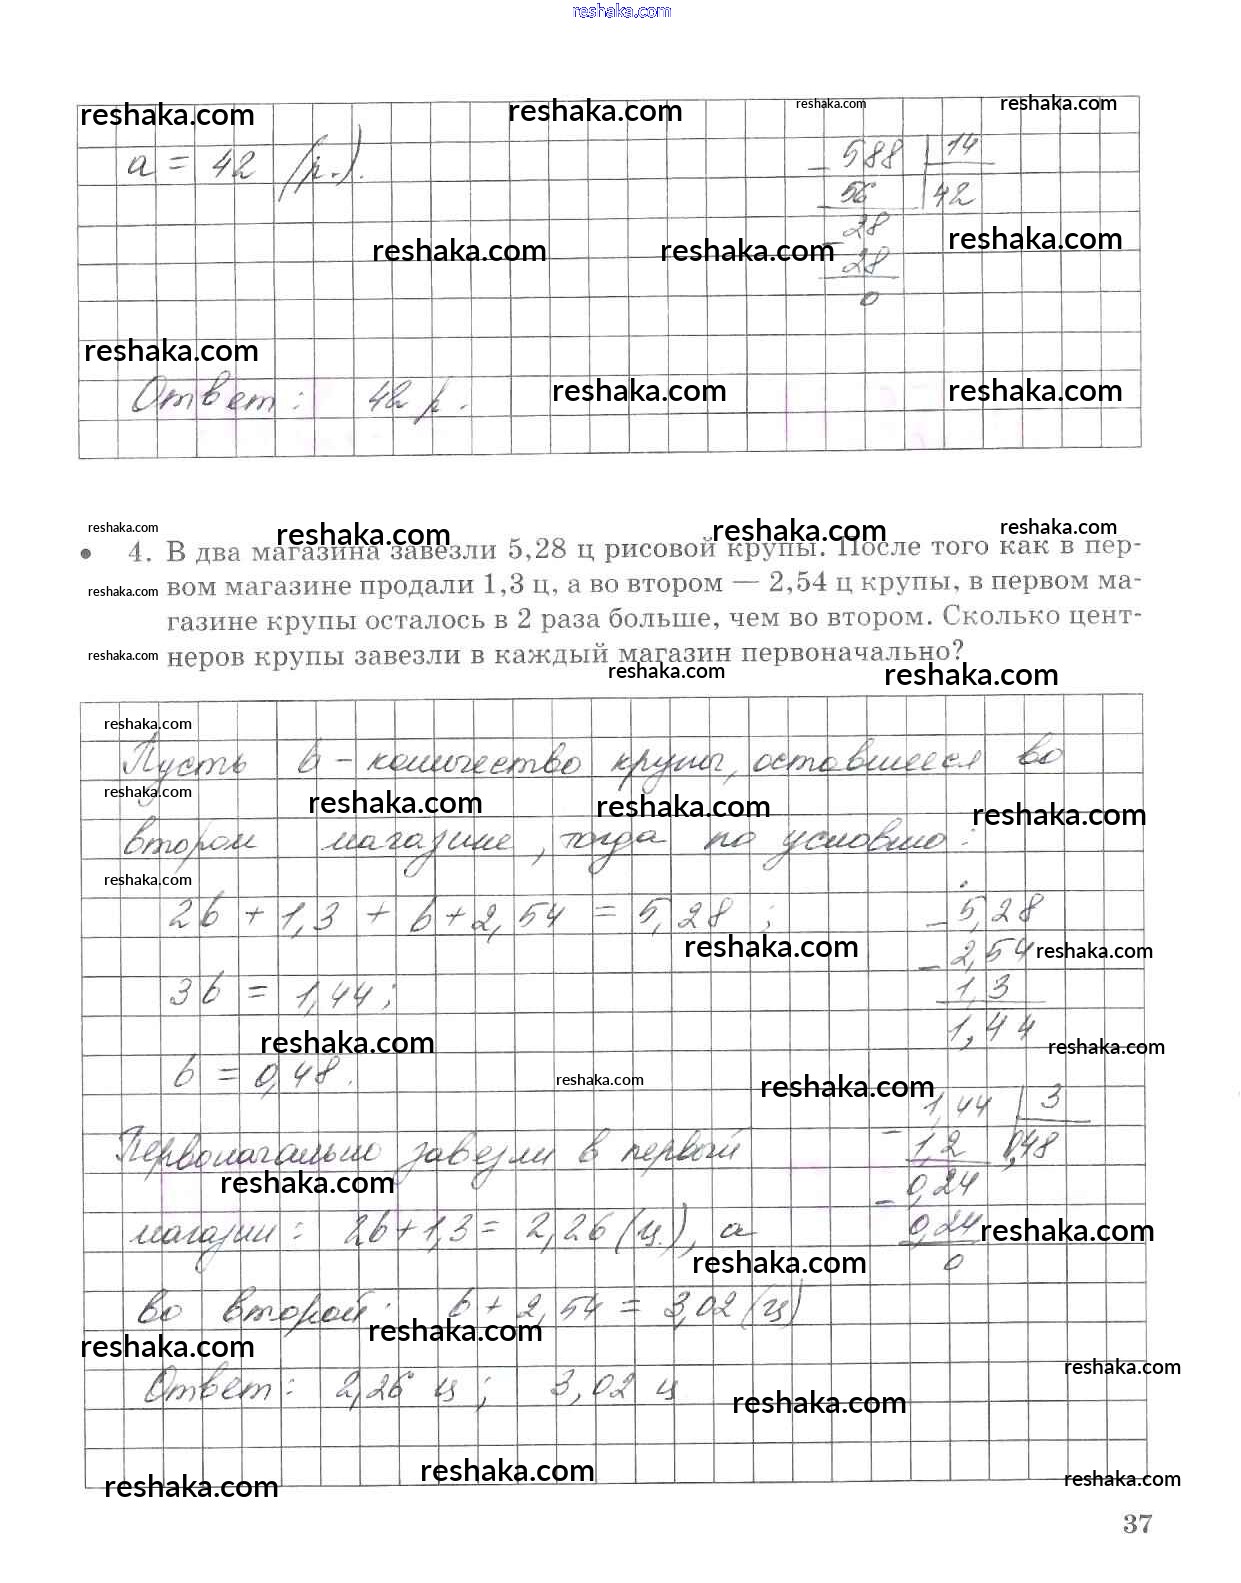 reshaka.com
reshaka.com reshaka.com reshaka.com reshaka.com
a = 42 (р.).
588 | 14
56 | 42
28
reshaka.com reshaka.com reshaka.com
28
0
reshaka.com
Ответ: 42 р.
reshaka.com reshaka.com
reshaka.com reshaka.com reshaka.com reshaka.com
• 4. В два магазина завезли 5,28 ц рисовой крупы. После того как в пер-
reshaka.com вом магазине продали 1,3 ц, а во втором — 2,54 ц крупы, в первом ма-
газине крупы осталось в 2 раза больше, чем во втором. Сколько цент-
reshaka.com неров крупы завезли в каждый магазин первоначально?
reshaka.com reshaka.com
reshaka.com
Пусть b - количество крупы, оставшееся во
reshaka.com reshaka.com reshaka.com reshaka.com
втором магазине, тогда по условию:
reshaka.com
2b + 1,3 + b + 2,54 = 5,28 ;
- 5,28
reshaka.com
- 2,54 reshaka.com
3b = 1,44 ;
1,3
1,44
reshaka.com reshaka.com
b = 0,48.
reshaka.com reshaka.com
1,44 | 3
- 1,2 0,48
Первоначально завезли в первый
reshaka.com
- 0,24
магазин: 2b + 1,3 = 2,26 (ц.), а
0,24 reshaka.com
reshaka.com
0
во второй: b + 2,54 = 3,02 (ц)
reshaka.com reshaka.com
reshaka.com
Ответ: 2,26 ц ; 3,02 ц
reshaka.com
reshaka.com reshaka.com reshaka.com
37